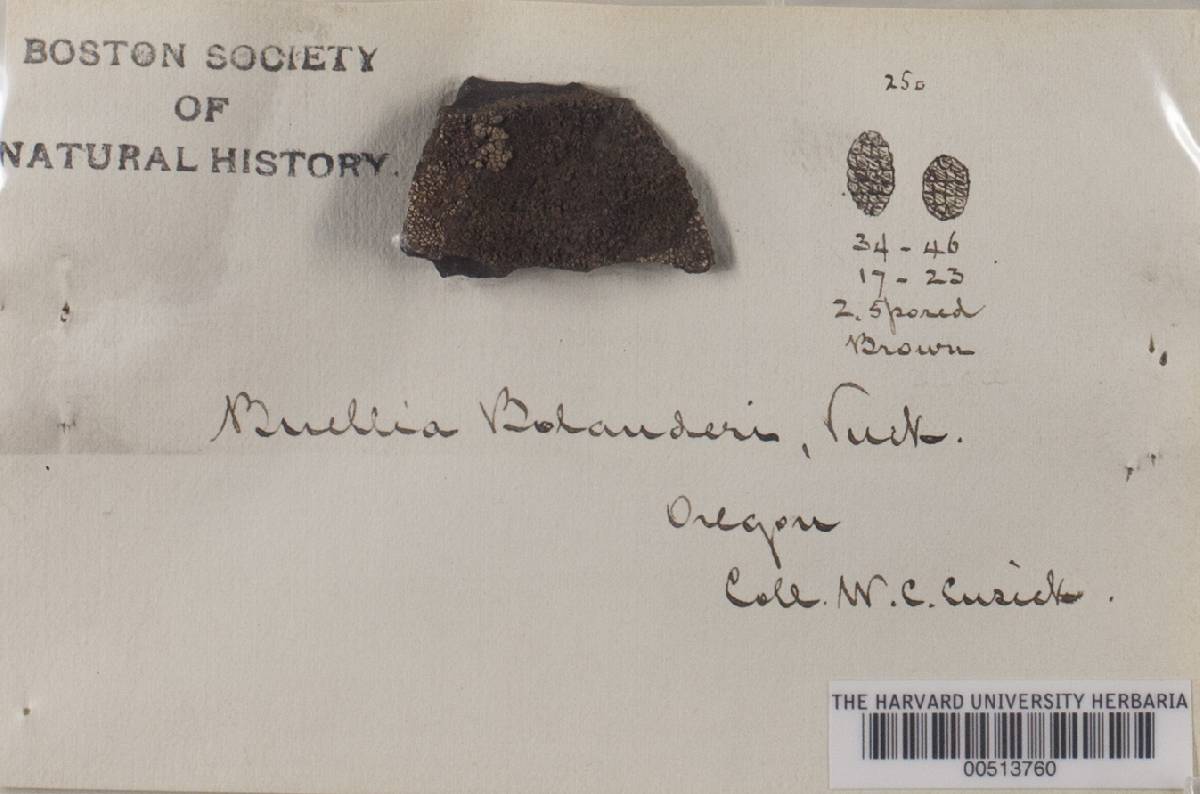 BOSTON SOCIETY
OF
NATURAL HISTORY.
250
34 - 46
17 - 23
2. Spored
Brown
Buellia Bolanderi, Tuck.
Oregon
Coll. W. C. Cusick.
THE HARVARD UNIVERSITY HERBARIA
00513760